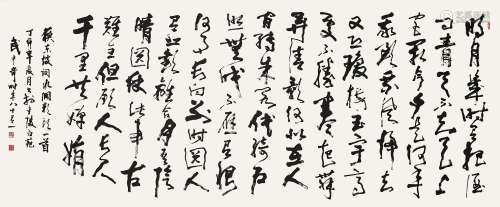 明月幾時有把酒
問青天不知天上
宮闕今夕是何年
我欲乘風歸去
又恐瓊樓玉宇高
處不勝寒起舞
弄清影何似在人
間轉朱閣低綺户
照無眠不應有恨
何事長向别時圆人
有悲歡離合月有陰
晴圆缺此事古
難全但願人長久
千里共嬋娟
蘇東坡詞水調歌頭一首
丁卯年夏月
武中奇時年八十一